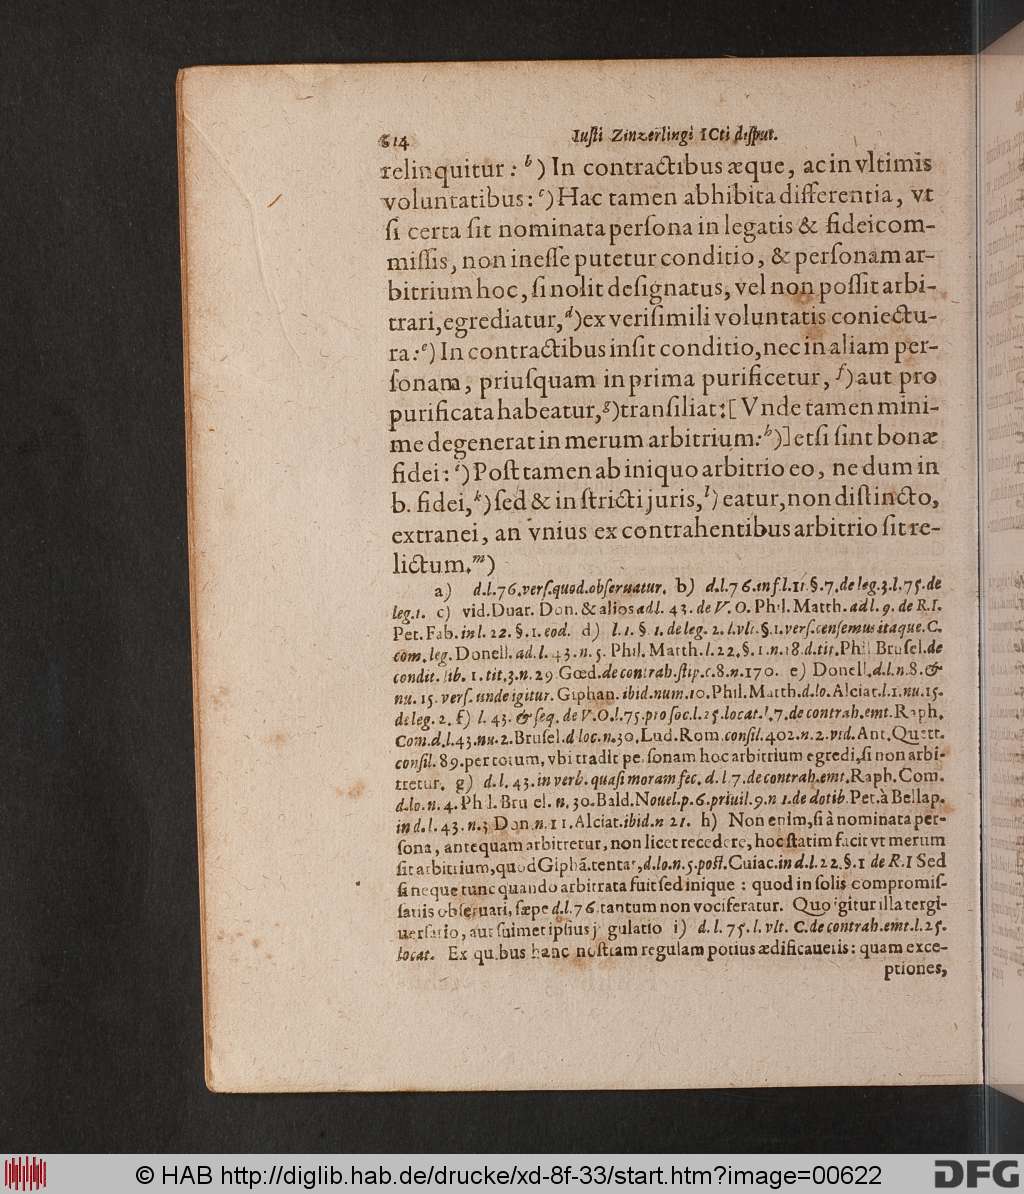 614 Iuſti Zinzerlingi ICti diſput.
relinquitur: b) In contractibus æque, ac in vltimis
voluntatibus: c) Hac tamen abhibita differentia, vt
ſi certa ſit nominata perſona in legatis & fideicom-
miſſis, non ineſſe putetur conditio, & perſonam ar-
bitrium hoc, ſi nolit deſignatus, vel non poſſit arbi-
trari, egrediatur, d) ex veriſimili voluntatis coniectu-
ra: e) In contractibus inſit conditio, nec in aliam per-
ſonam, priuſquam in prima purificetur, f) aut pro
purificata habeatur, g) tranſiliat: [Vnde tamen mini-
me degenerat in merum arbitrium: h)] etſi ſint bonæ
fidei: i) Poſt tamen ab iniquo arbitrio eo, ne dum in
b. fidei, k) ſed & in ſtricti juris, l) eatur, non diſtincto,
extranei, an vnius ex contrahentibus arbitrio ſit re-
lictum. m)
a) d.l.76. verſ. quod. obſeruatur. b) d.l.76. in f.l.11. §.7. de leg.3.l.75. de
leg.1. c) vid. Duar. Don. & alios ad l. 43. de V. O. Phil. Matth. ad l. 9. de R.I.
Pet. Fab. in l. 22. §. 1. eod. d) l. 1. §. 1. de leg. 2. l. vlt. §. 1. verſ. cenſemus itaque. C.
com. leg. Donell. ad. l. 43. n. 5. Phil. Matth. l. 22. §. 1. n. 18. d. tit. Phil. Bruſel. de
condit. lib. 1. tit. 3. n. 29. Gœd. de contrah. ſtip. c. 8. n. 170. e) Donell. d. l. n. 8. &
nu. 15. verſ. unde igitur. Giphan. ibid. num. 10. Phil. Matth. d. lo. Alciat. l. 1. nu. 15.
de leg. 2. f) l. 43. & ſeq. de V. O. l. 75. pro ſoc. l. 25. locat. l. 7. de contrah. emt. Raph.
Com. d. l. 43. nu. 2. Bruſel. d loc. n. 30. Lud. Rom. conſil. 402. n. 2. vid. Ant. Quett.
conſil. 89. per totum, vbi tradit perſonam hoc arbitrium egredi, ſi non arbi-
tretur. g) d. l. 43. in verb. quaſi moram fec. d. l. 7. de contrah. emt. Raph. Com.
d. lo. n. 4. Phil. Bruſel. n. 30. Bald. Nouel. p. 6. priuil. 9. n 1. de dotib. Pet. à Bellap.
in d. l. 43. n. 3 Don. n. 11. Alciat. ibid. n 21. h) Non enim, ſi à nominata per-
ſona, antequam arbitretur, non licet recedere, hoc ſtatim facit vt merum
ſit arbitrium, quod Giphã. tentat, d. lo. n. 5. poſt. Cuiac. in d. l. 22. §. 1 de R. I Sed
ſi neque tunc quando arbitrata fuit ſed inique : quod in ſolis compromiſ-
ſariis obſeruari, ſæpe d. l. 76. tantum non vociferatur. Quo igitur illa tergi-
uerſatio, aut ſuimet ipſius jugulatio i) d. l. 75. l. vlt. C. de contrah. emt. l. 25.
locat. Ex quibus hanc noſtram regulam potius ædificaueris: quam exce-
ptiones,
© HAB http://diglib.hab.de/drucke/xd-8f-33/start.htm?image=00622
DFG